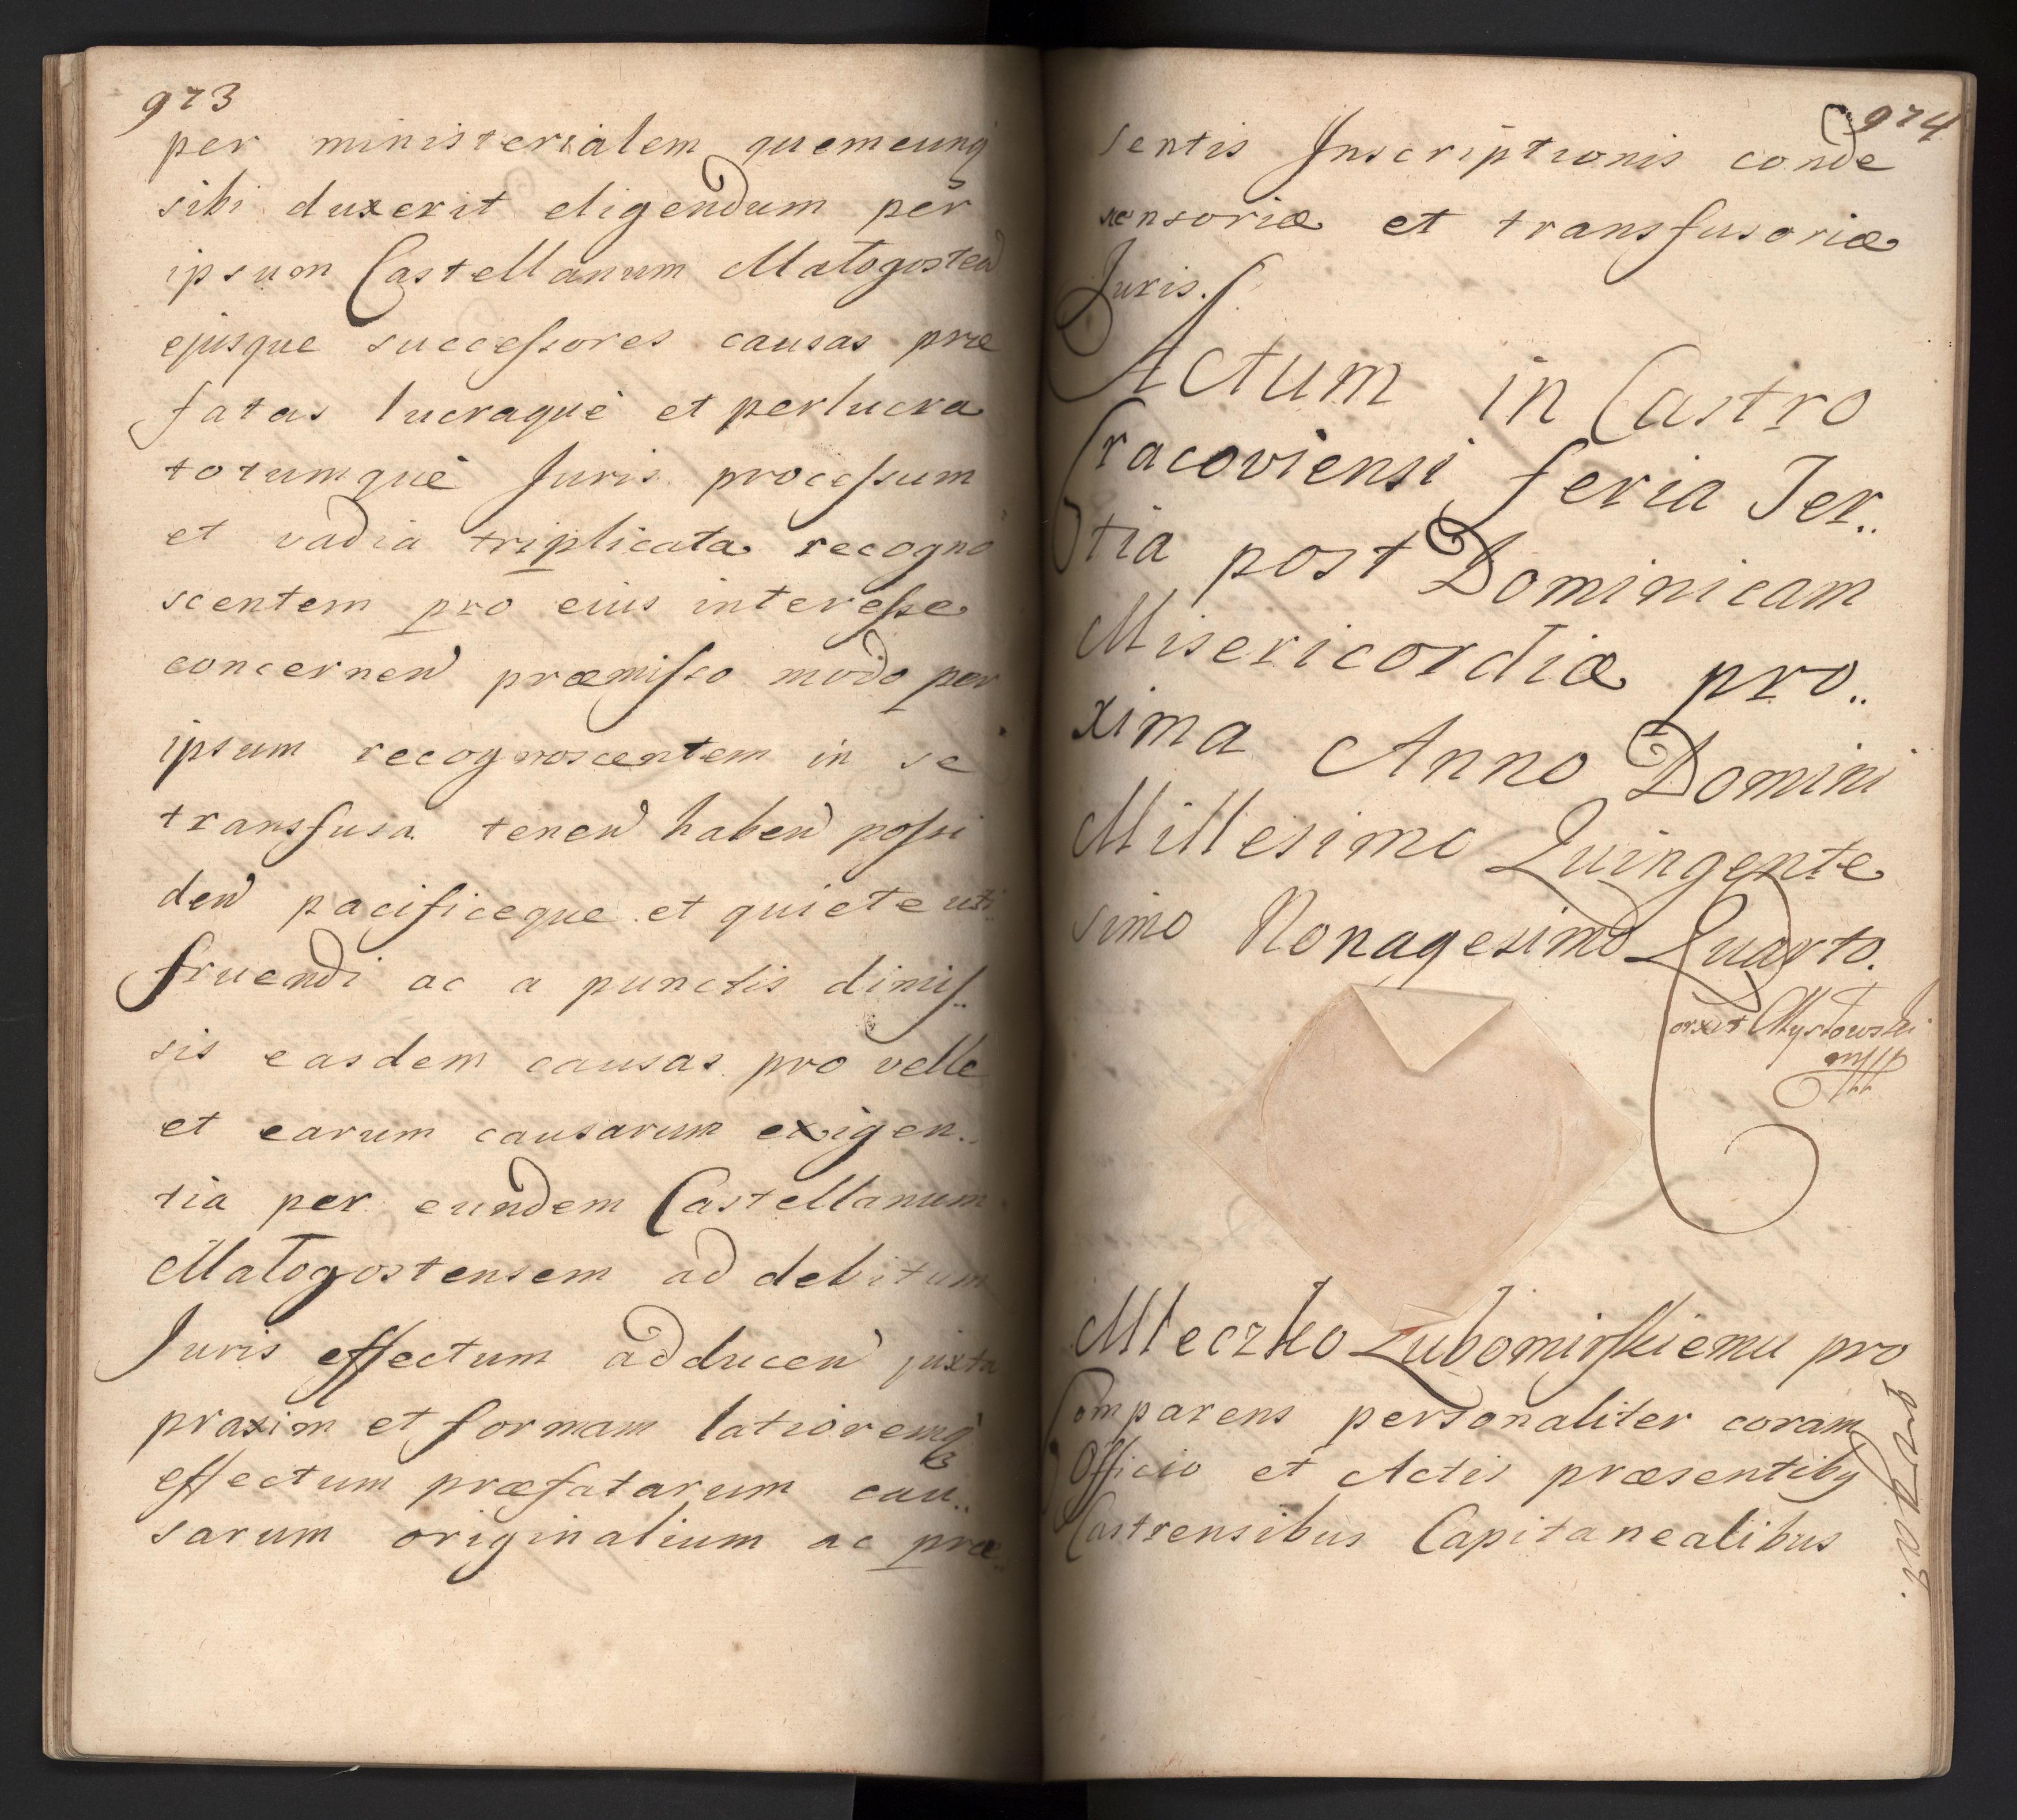 973
per ministerialem quemcunq
sibi duxerit eligendum per
ipsum Castellanum Małogosten
ejusque successores causas præ
fatas lucraque et perlucra
totumque Juris processum
et vadia triplicata recogno
scentem pro eius interesse
concernen præmisso modo per
ipsum recognoscentem in se
transfusa tenen haben possi
den pacificeque et quiete uti
fruendi ac a punctis dimis..
sis easdem causas pro velle
et earum causarum exigen..
tia per eundem Castellanum
Małogostensem ad debitum
Juris effectum adducen juxta
praxim et formam latioremq
effectum præfatarum cau..
sarum originalium ac præ..
974
sentis Inscriptionis conde
scensoriæ et transfusoriæ
Juris.
Actum in Castro
Cracoviensi feria Ter..
tia post Dominicam
Misericordiæ pro..
xima Anno Domini
Millesimo Quingente
simo Nonagesimo Quarto.
Mysłowski
mpp
Mleczko Lubomirskiemu pro
Comparens personaliter coram
Officio et Actis præsentiby
Castrensibus Capitanealibus